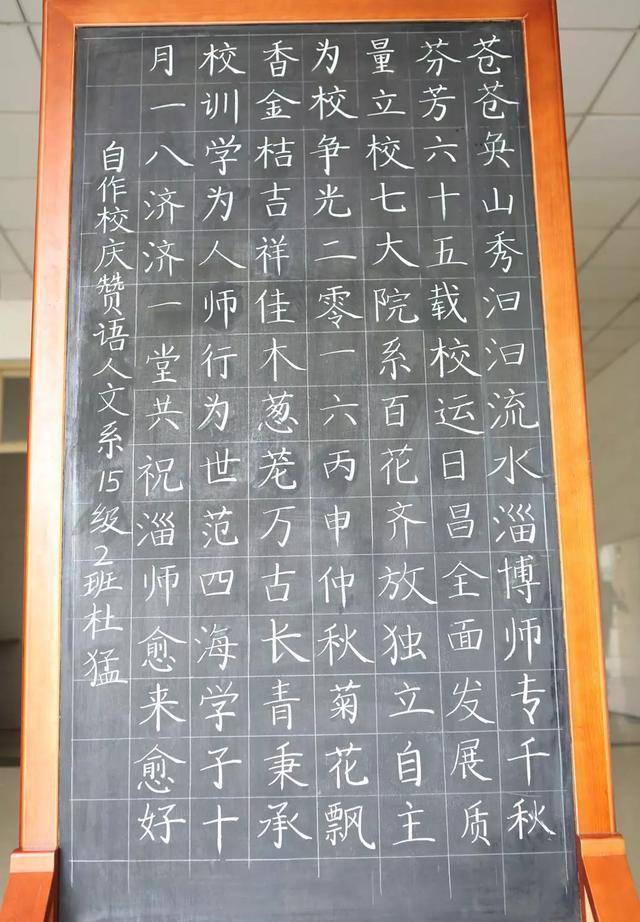 苍苍奂山秀汩汩流水淄博师专千秋
芬芳六十五载校运日昌全面发展质
量立校七大院系百花齐放独立自主
为校争光二零一六丙申仲秋菊花飘
香金桔吉祥佳木葱茏万古长青秉承
校训学为人师行为世范四海学子十
月一八济济一堂共祝淄师愈来愈好
自作校庆赞语人文系15级2班杜猛